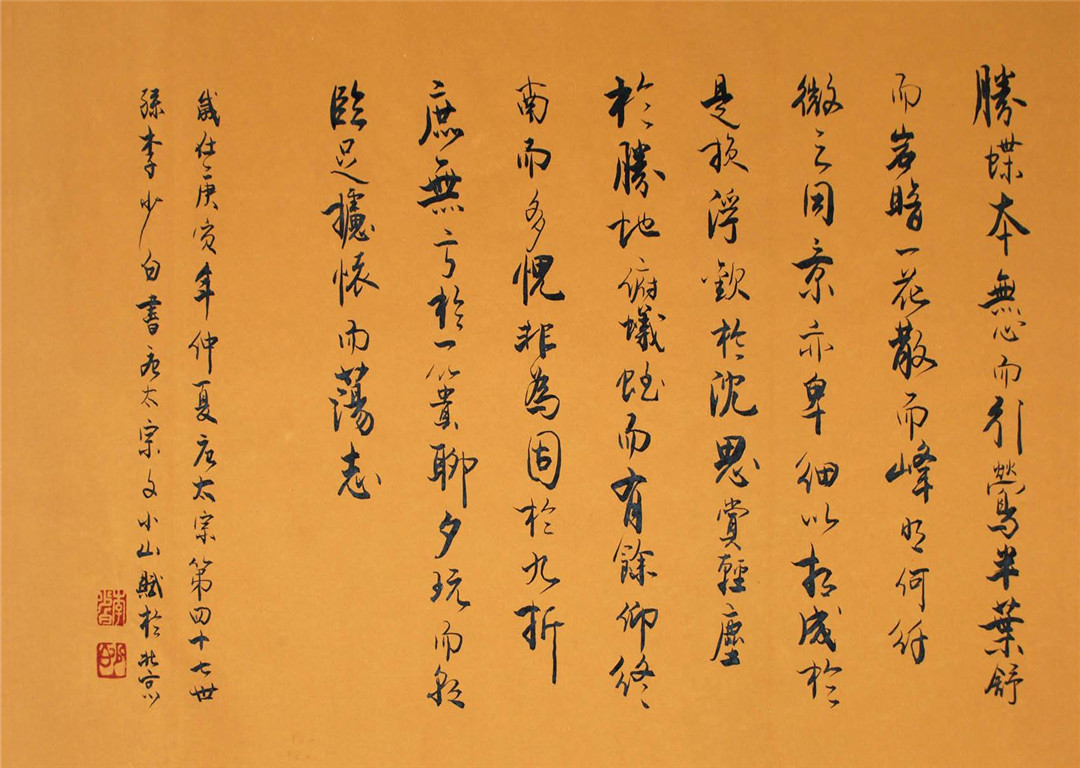 勝蝶本無心而引鶯半葉舒
而岩暗一花散而峰明何纤
微之同景亦卑細以相成於
是换浮歡於沈思賞輕塵
於勝地俯蟻蛭而有餘仰終
南而多愧非為固於九折
庶無亏於一簣聊夕玩而朝
臨足攄懷而蕩志
歲仕庚寅年仲夏唐太宗第四十七世
孫李少白書唐太宗文小山賦於北京